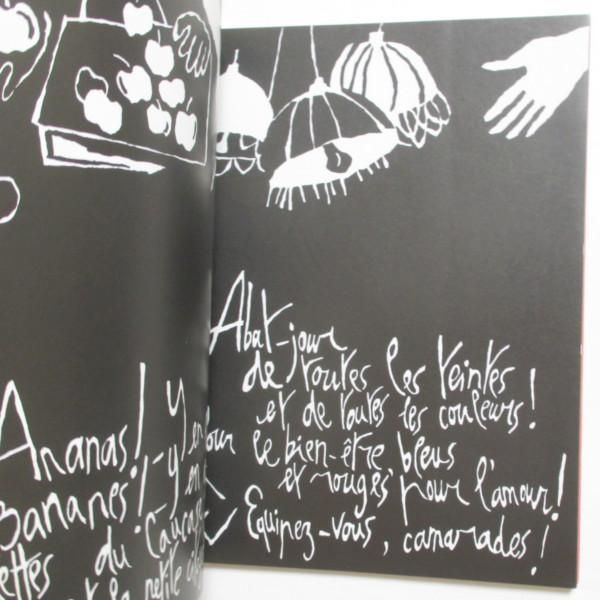 Ananas! Y en
Bananes! - Y en
du Caucase
et la petite
Abat-jour
de toutes les teintes
et de toutes les couleurs!
le bien-être, bleus
et rouges, pour l'amour!
Equipez-vous, camarades!